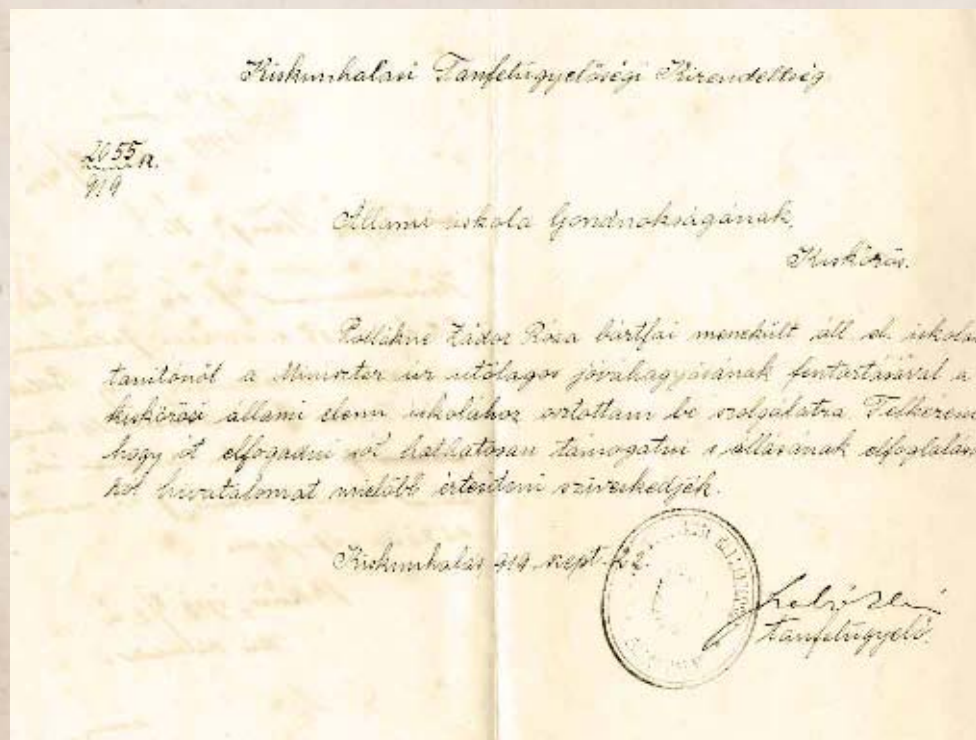 Kiskunhalasi Tanfelügyelőségi Kirendeltség
2655 sz.
919
Állami iskola Gondnokságának,
Kiskőrös.
Pollákné Zádor Róza bártfai menekült áll. el. iskolai
tanítónőt a Miniszter úr utólagos jóváhagyásának fentartásával a
kiskőrösi állami elemi iskolához osztottam be szolgálatra. Felkérem
hogy őt elfogadni sőt hathatósan támogatni s állásának elfoglalásá
ról hivatalomat mielőbb értesíteni szíveskedjék.
Kiskunhalas, 919. szept. 22.
tanfelügyelő.